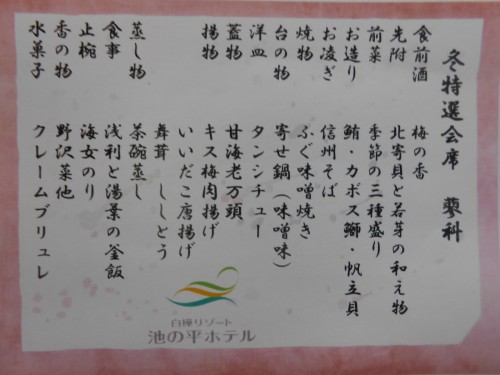 冬特選会席 蓼科
食前酒 梅の香
先附 北寄貝と若芽の和え物
前菜 季節の三種盛り
お造り 鮪・カボス鰤・帆立貝
お凌ぎ 信州そば
焼物 ふぐ味噌焼き
台の物 寄せ鍋(味噌味)
洋皿 タンシチュー
蓋物 甘海老万頭
揚物 キス梅肉揚げ
いいだこ唐揚げ
舞茸 ししとう
蒸し物 茶碗蒸し
食事 浅利と湯葉の釜飯
止椀 海女のり
香の物 野沢菜他
水菓子 クレームブリュレ
白樺リゾート
池の平ホテル